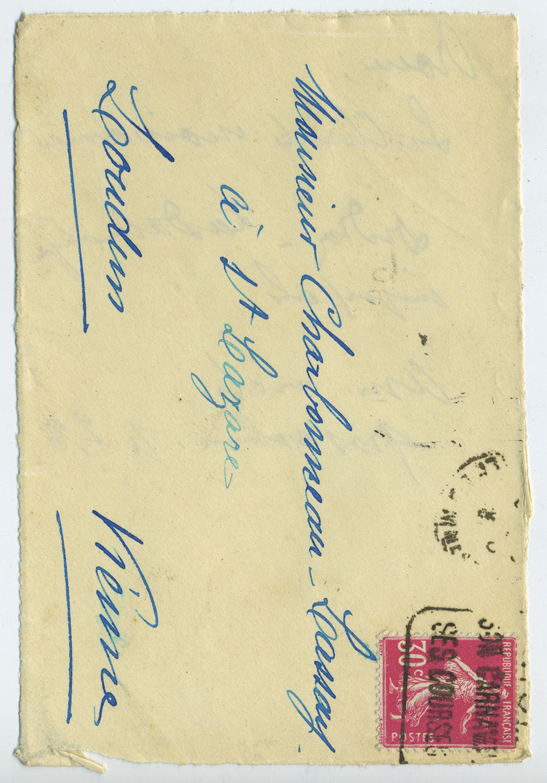 Monsieur Charbonneau-Lassay
à St Lazare
Loudun Vienne
RÉPUBLIQUE FRANÇAISE
30c
POSTES
SON CARNAVAL
SES COURSES